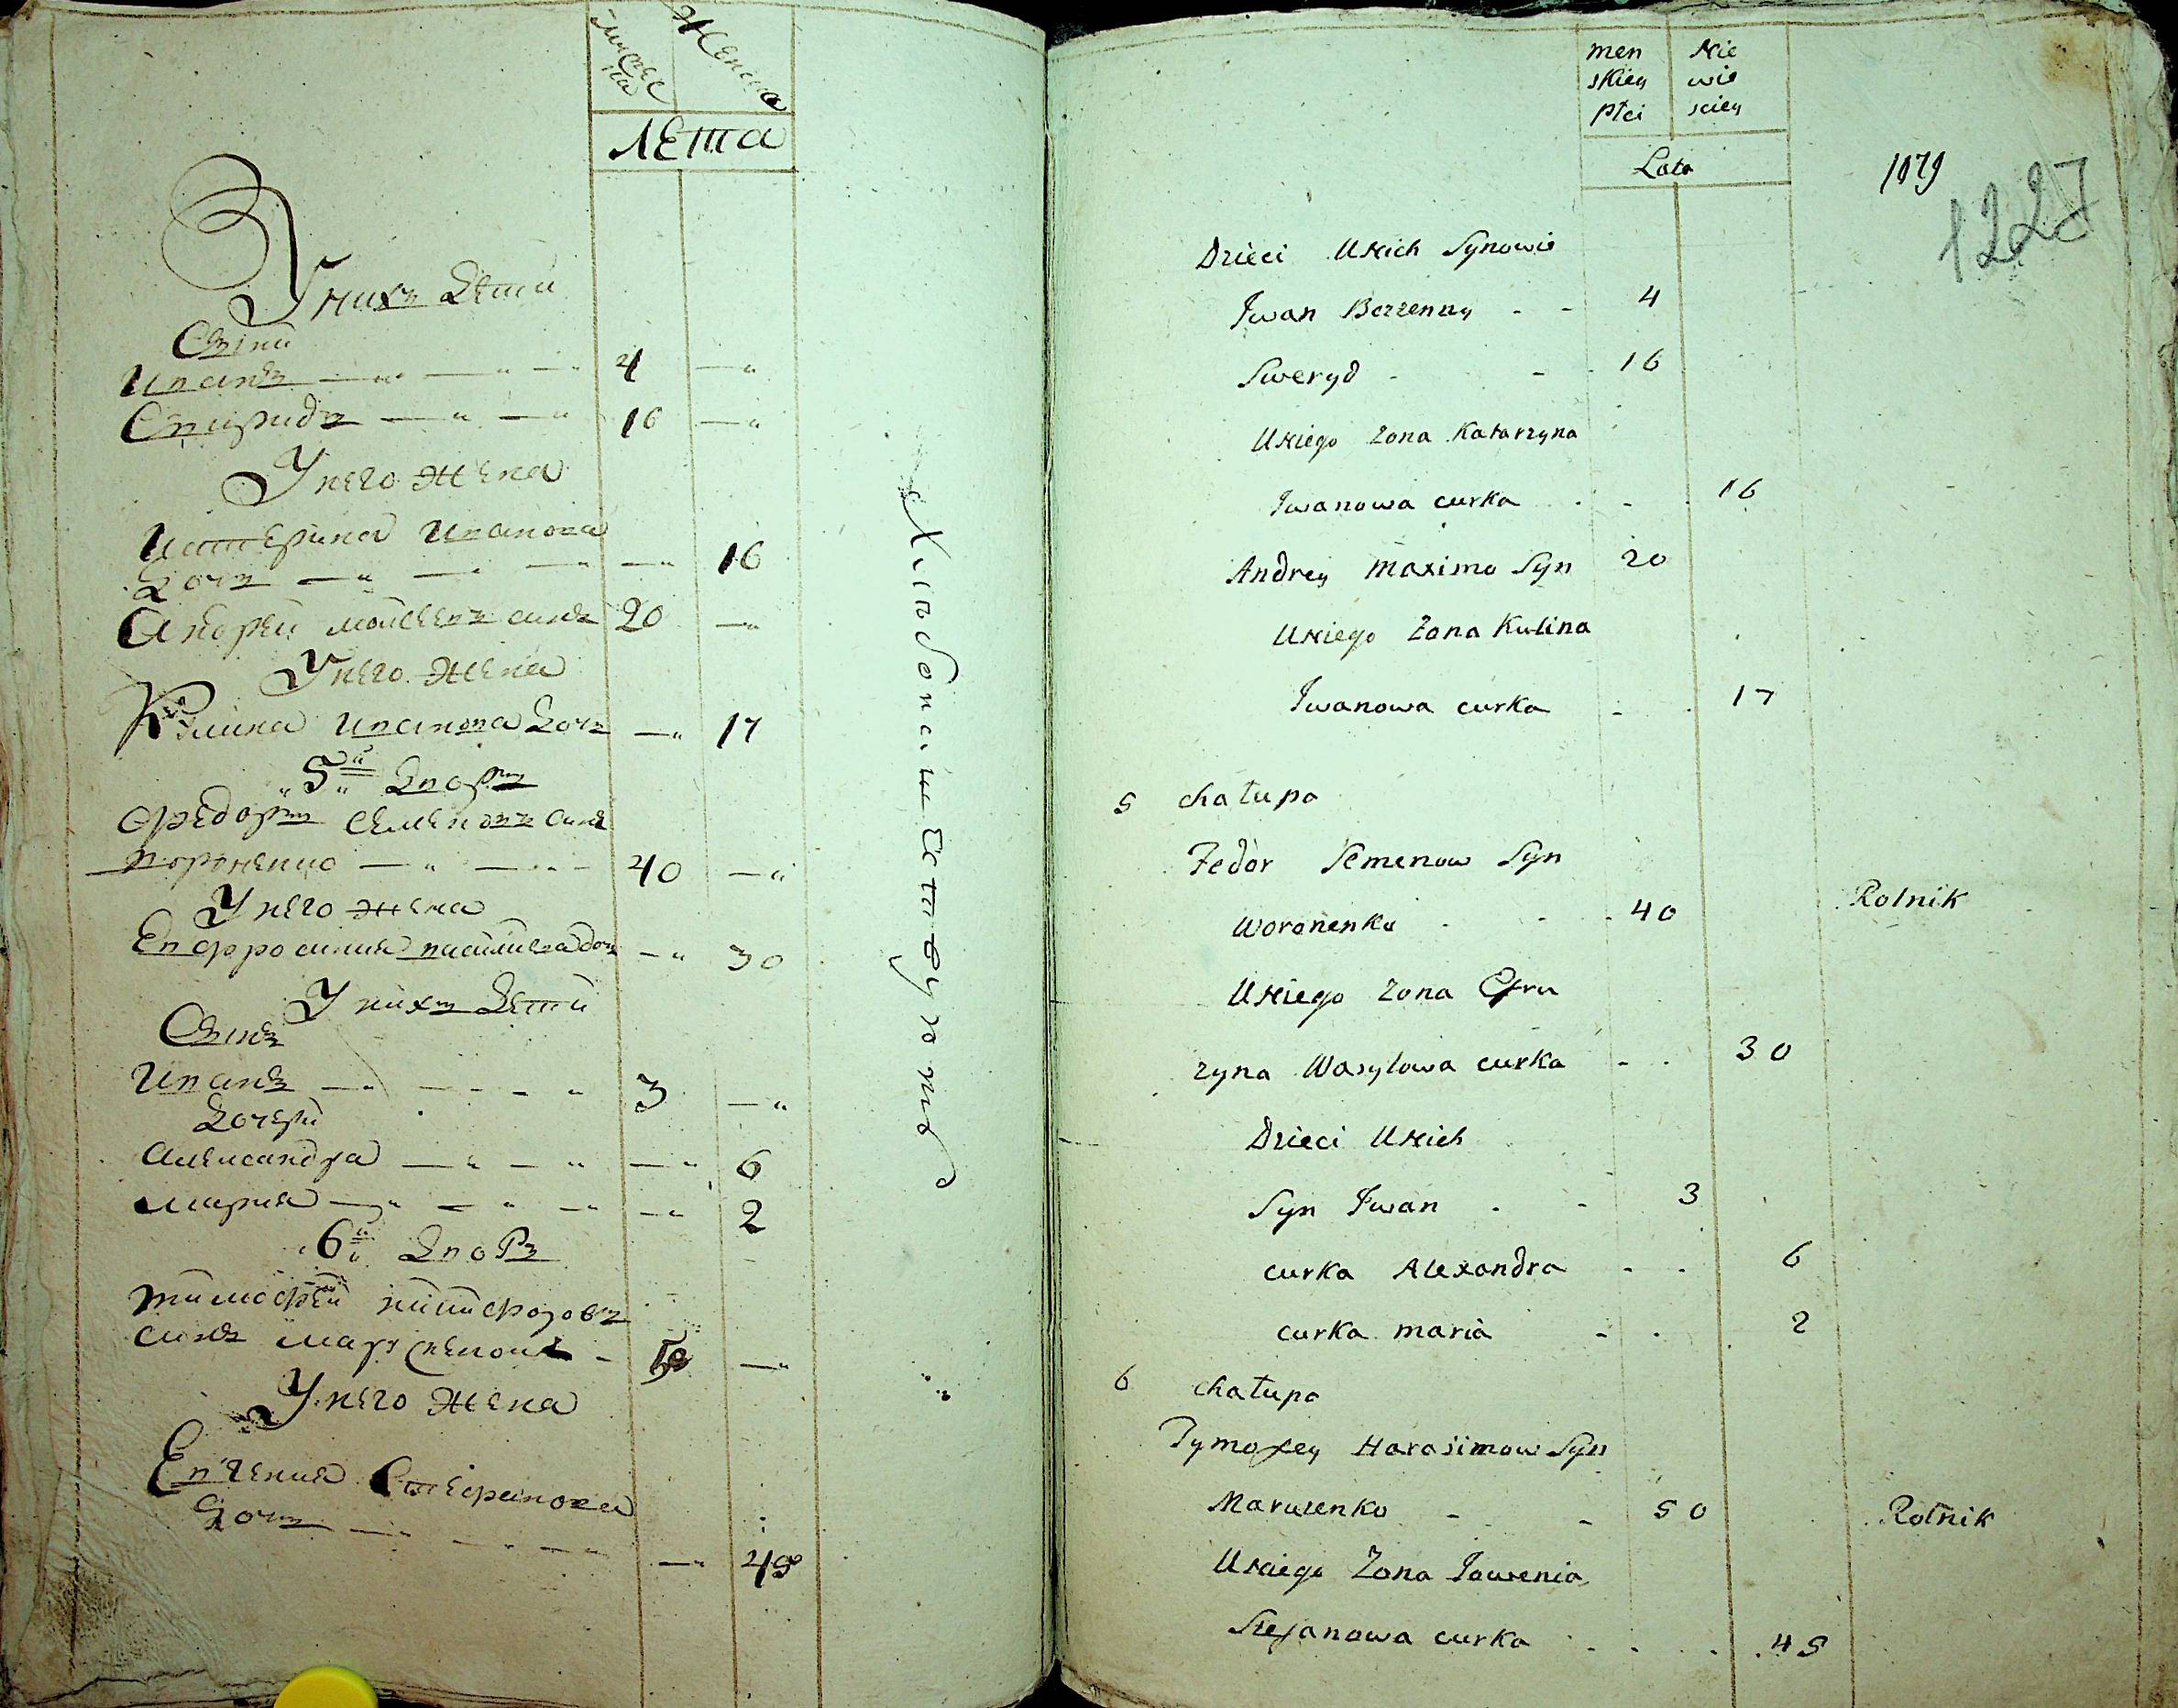 мужес
ка
Женска
Лета
У нихъ дети
Сыни
Иванъ 4
Спиридъ 16
У него жена
Катерина Иванова
дочь 16
Андрей сынъ 20
У него жена
Иванова дочь 17
5й Дворъ
Федоръ Семеновъ сынъ
Вороненко 40
У него жена
Евфросиния дочь 30
У нихъ дети
Сынъ
Иванъ 3
Дочери
Александра 6
Мария 2
6й Дворъ
Тимофей
сынъ 50
У него жена
Евгения Стефанова
дочь 45
хлебопашествуютъ
men Nie
skiey wie
płci sciey
Lata
1079
1227
Dzieci Unich Synowie
Jwan Bezzenny 4
Sweryd 16
Uniego Zona Katarzyna
Jwanowa curka 16
Andrey Maxima Syn 20
Uniego Zona Kulina
Jwanowa curka 17
5 chałupa
Fedor Semenow Syn
Woronenko 40 Rolnik
Uniego Zona Efru
zyna Wasylowa curka 30
Dzieci Unich
Syn Jwan 3
curka Alexandra 6
curka maria 2
6 chałupa
Tymofey Harasimow Syn
50 Rolnik
Uniego Zona Jawenia
Stefanowa curka 45